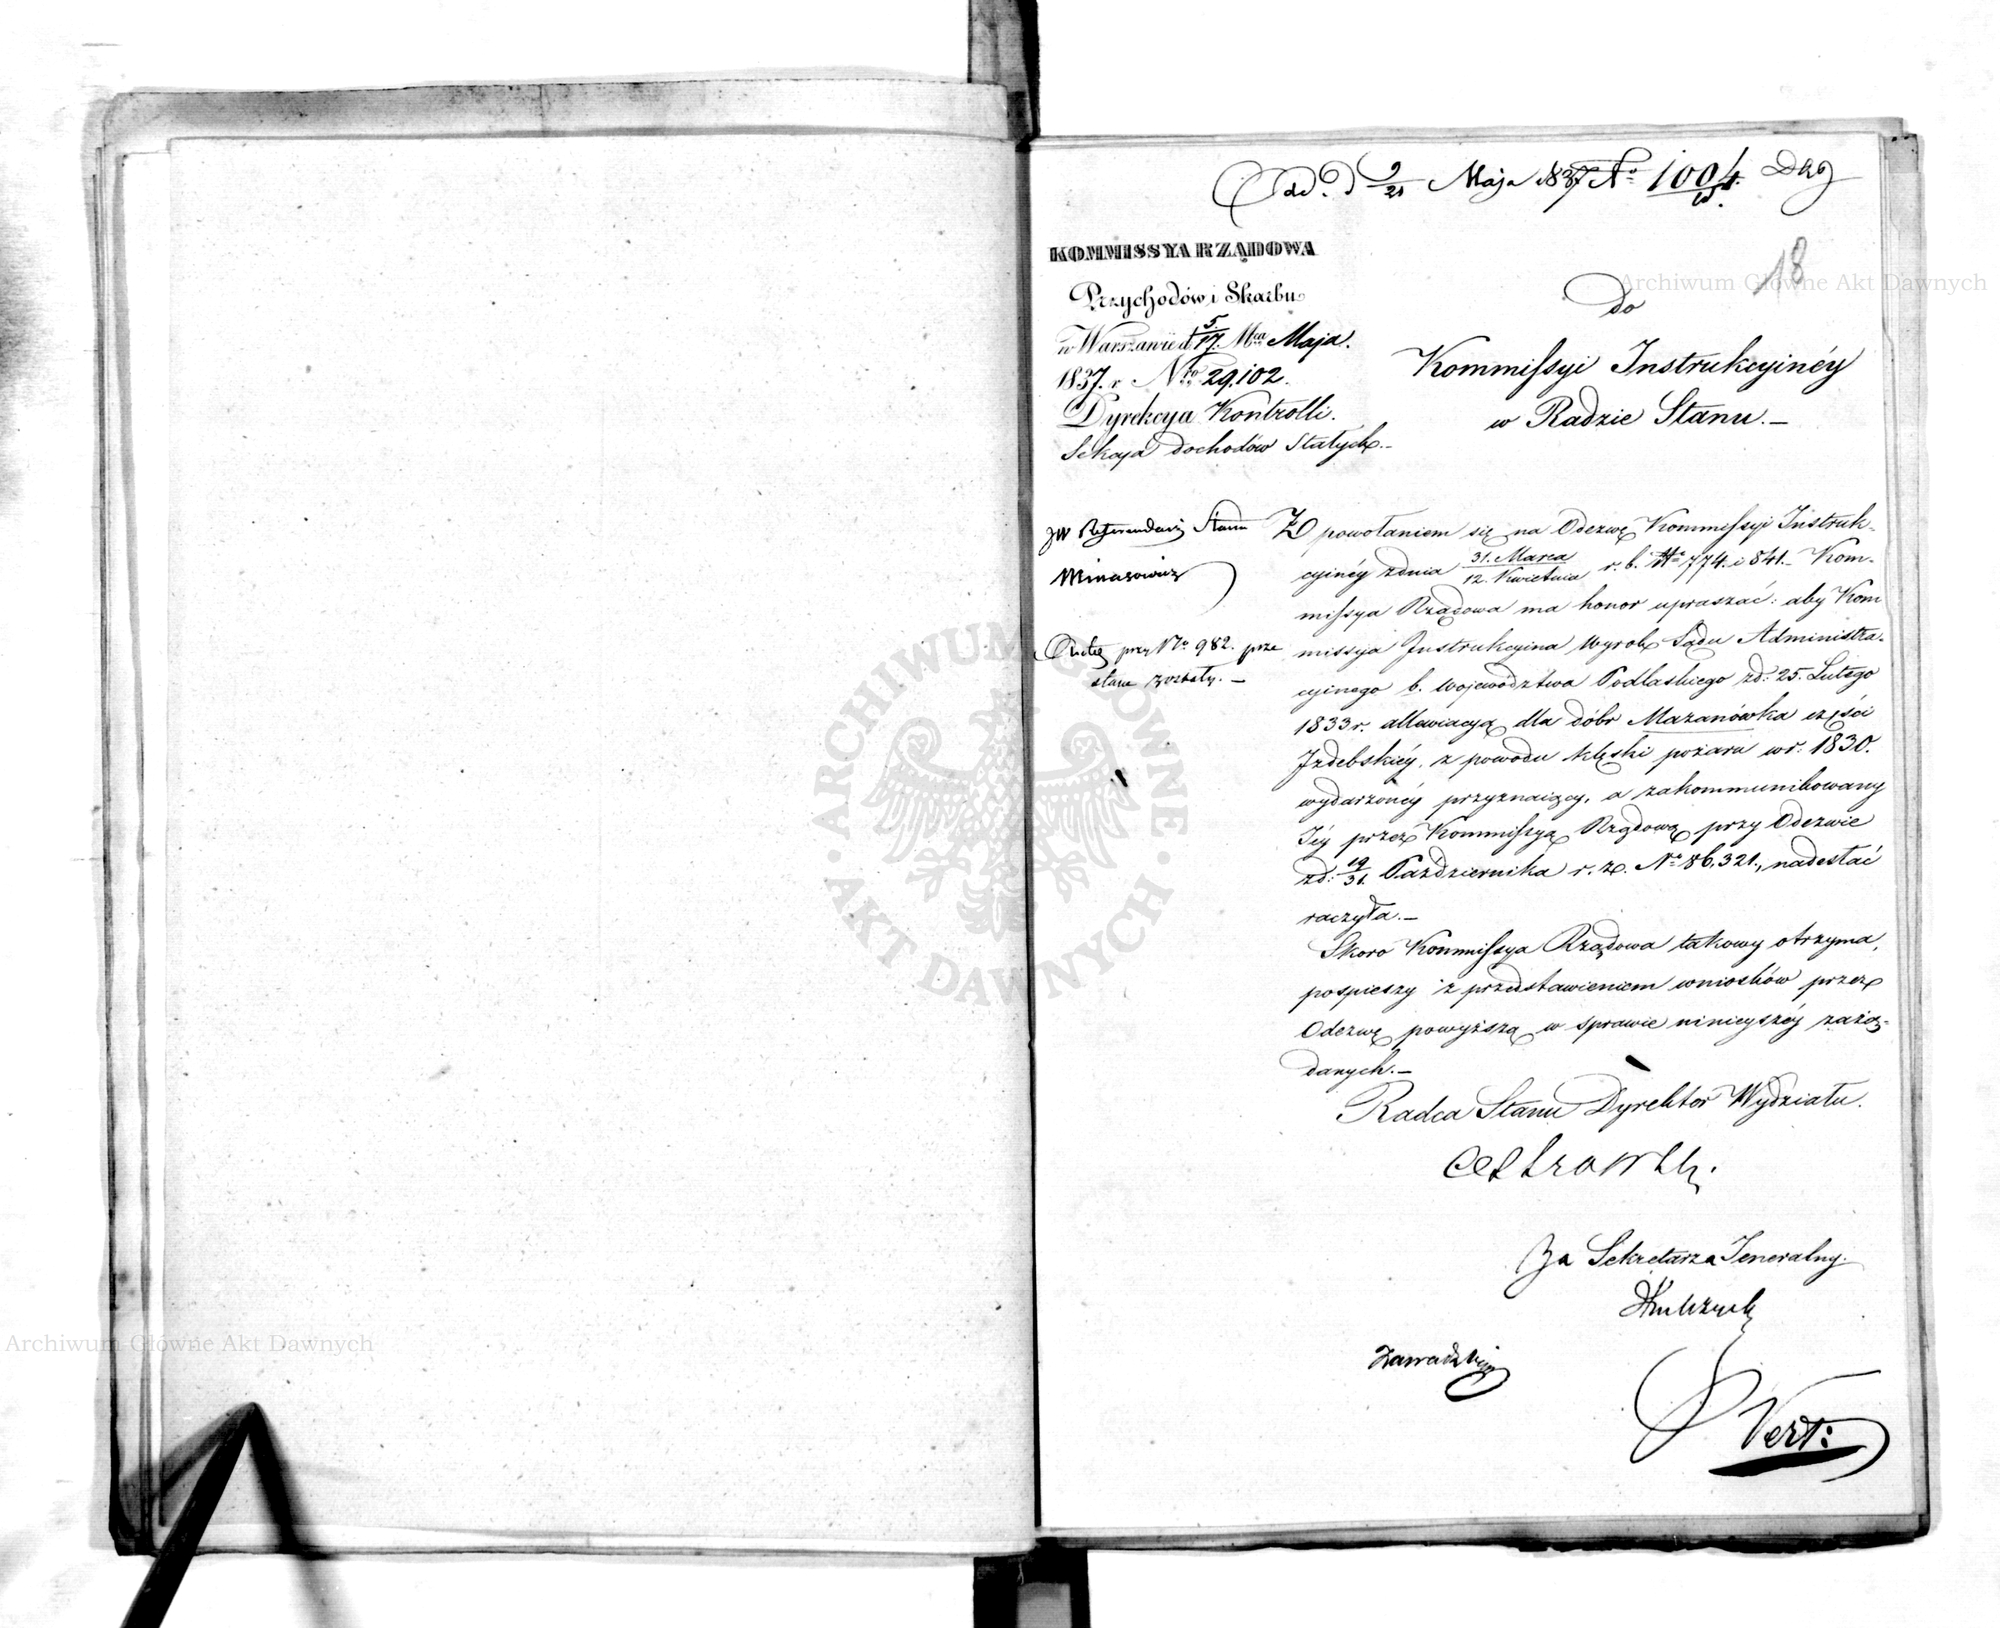 Odd. d 9/21 Maja 1837 No 1004.
18
KOMMISSYA RZĄDOWA
Przychodów i Skarbu
w Warszawie d 5/17. Mca Maja.
1837. r Nro 29,102.
Dyrekcya Kontrolli.
Sekcya dochodów Stałych.-
do
Kommissyi Instrukcyinéy
w Radzie Stanu.-
JW Referendarz Stanu
Minasowicz
przy No 982. prze
słane zostały.-
Z powołaniem się na Odezwę Kommissyi Instruk-
cyinéy z dnia 31. Marca/12. Kwietnia r. b. No 774. i 841.- Kom-
missya Rządowa ma honor upraszać: aby Kom
missya Instrukcyina Wyrok Sądu Administra-
cyinego b. Województwa Podlaskiego zd: 25. Lutego
1833 r. allewiacyą dla dóbr Mazanówka części
Izdebskiéy, z powodu klęski pożaru w r: 1830.
wydarzonéy przyznaiący, a zakommunikowany
Iéy przez Kommissyą Rządową przy Odezwie
zd: 19/31. Października r. z. No 86,321., nadesłać
raczyła.-
Skoro Kommissya Rządowa takowy otrzyma,
pospieszy z przedstawieniem wniosków przez
Odezwę powyższą w sprawie ninieyszéy zażą-
danych.-
Radca Stanu Dyrektor Wydziału.
Za Sekretarza Jeneralny.
Zawadzki
Vert:
Archiwum Główne Akt Dawnych
Archiwum Główne Akt Dawnych
ARCHIWUM GŁÓWNE
AKT DAWNYCH